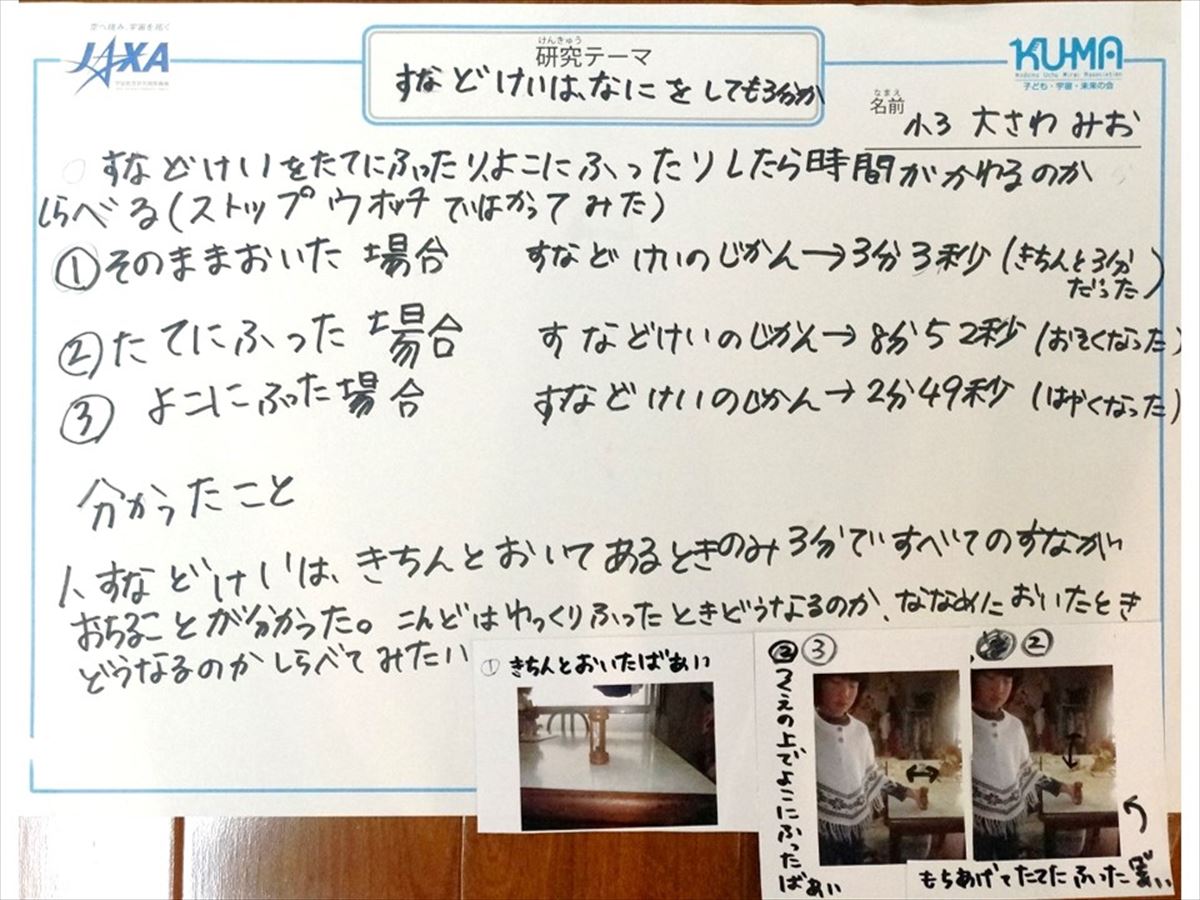 空へ挑み、宇宙を拓く
JAXA
けんきゅう
研究テーマ
すなどけいは、なにをしても3分か
KU-MA
Kodomo Uchu Mirai Association
子ども・宇宙・未来の会
なまえ
名前 小3 大さわ みお
すなどけいをたてにふったり、よこにふったりしたら時間がかわるのか
しらべる(ストップウオッチではかってみた)
①そのままおいた場合 すなどけいのじかん→3分3秒(きちんと3分
だった)
②たてにふった場合 すなどけいのじかん→8分52秒(おそくなった)
③よこにふった場合 すなどけいのじかん→2分49秒(はやくなった)
分かったこと
1、すなどけいは、きちんとおいてあるときのみ3分ですべてのすなが
おちることが分かった。こんどはゆっくりふったときどうなるのか、ななめにおいたとき
どうなるのかしらべてみたい
① きちんとおいたばあい
③
つくえの上でよこにふったばあい
②
もちあげてたてにふった